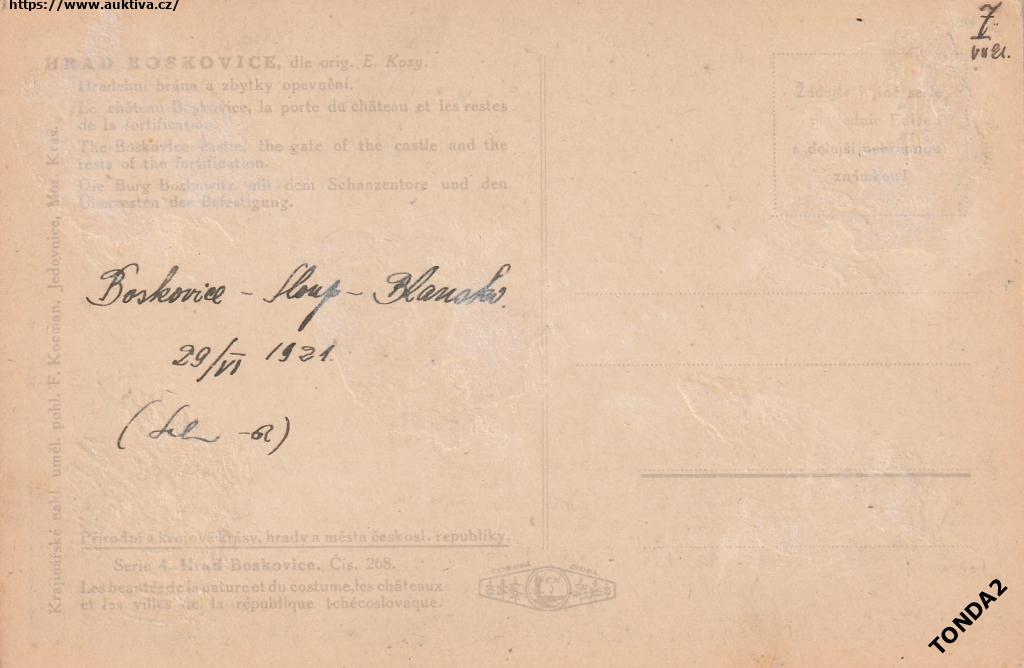 https://www.auktiva.cz/
7
VII 21.
HRAD BOSKOVICE, dle orig. E. Kosy.
Hradební brána a zbytky opevnění.
Le château Boskovice, la porte du château et les restes
de la fortification.
The Boskovice castle, the gate of the castle and the
rests of the fortification.
Die Burg Boskowitz mit dem Schanzentore und den
Überresten der Befestigung.
Žádejte i jiné serie
Edice
a dolejší ochrannou
známkou!
Krajinářské nakl. uměl. pohl. F. Kocman, Jedovnice, Mor. Kras.
Boskovice - Sloup - Blansko.
29/VI 1921.
Přírodní a krojové krásy, hrady a města českosl. republiky.
Serie 4. Hrad Boskovice. Čís. 268.
Les beautés de la nature et du costume, les châteaux
et les villes de la république tchécoslovaque.
TONDA2